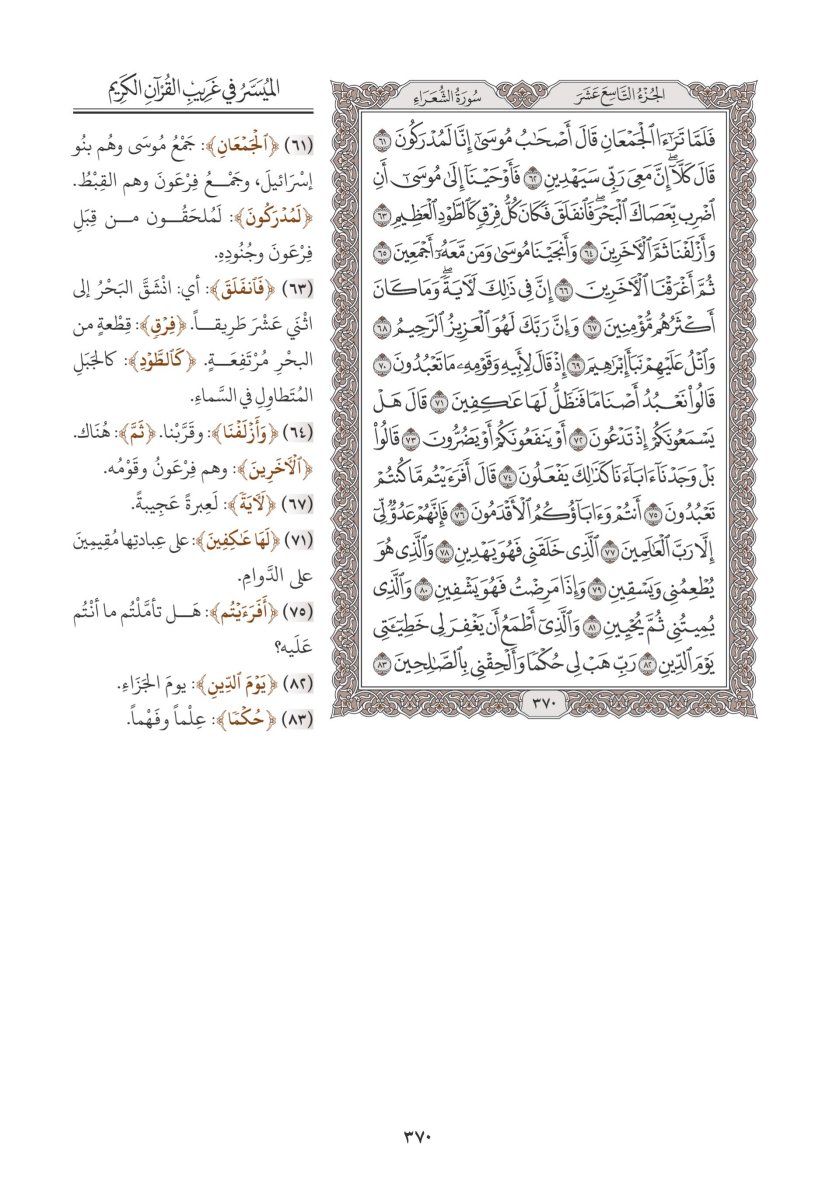 الجُزْءُ التَّاسِعَ عَشَرَ
سُورَةُ الشُّعَرَاءِ
فَلَمَّا تَرَٰٓءَا ٱلْجَمْعَانِ قَالَ أَصْحَٰبُ مُوسَىٰٓ إِنَّا لَمُدْرَكُونَ ٦١
قَالَ كَلَّآۖ إِنَّ مَعِىَ رَبِّى سَيَهْدِينِ ٦٢ فَأَوْحَيْنَآ إِلَىٰ مُوسَىٰٓ أَنِ
ٱضْرِب بِّعَصَاكَ ٱلْبَحْرَۖ فَٱنفَلَقَ فَكَانَ كُلُّ فِرْقٍ كَٱلطَّوْدِ ٱلْعَظِيمِ ٦٣
وَأَزْلَفْنَا ثَمَّ ٱلْأٓخَرِينَ ٦٤ وَأَنجَيْنَا مُوسَىٰ وَمَن مَّعَهُۥٓ أَجْمَعِينَ ٦٥
ثُمَّ أَغْرَقْنَا ٱلْأٓخَرِينَ ٦٦ إِنَّ فِى ذَٰلِكَ لَأٓيَةًۖ وَمَا كَانَ
أَكْثَرُهُم مُّؤْمِنِينَ ٦٧ وَإِنَّ رَبَّكَ لَهُوَ ٱلْعَزِيزُ ٱلرَّحِيمُ ٦٨
وَٱتْلُ عَلَيْهِمْ نَبَأَ إِبْرَٰهِيمَ ٦٩ إِذْ قَالَ لِأَبِيهِ وَقَوْمِهِۦ مَا تَعْبُدُونَ ٧٠
قَالُوا۟ نَعْبُدُ أَصْنَامًا فَنَظَلُّ لَهَا عَٰكِفِينَ ٧١ قَالَ هَلْ
يَسْمَعُونَكُمْ إِذْ تَدْعُونَ ٧٢ أَوْ يَنفَعُونَكُمْ أَوْ يَضُرُّونَ ٧٣ قَالُوا۟
بَلْ وَجَدْنَآ ءَابَآءَنَا كَذَٰلِكَ يَفْعَلُونَ ٧٤ قَالَ أَفَرَءَيْتُم مَّا كُنتُمْ
تَعْبُدُونَ ٧٥ أَنتُمْ وَءَابَآؤُكُمُ ٱلْأَقْدَمُونَ ٧٦ فَإِنَّهُمْ عَدُوٌّ لِّىٓ
إِلَّا رَبَّ ٱلْعَٰلَمِينَ ٧٧ ٱلَّذِى خَلَقَنِى فَهُوَ يَهْدِينِ ٧٨ وَٱلَّذِى هُوَ
يُطْعِمُنِى وَيَسْقِينِ ٧٩ وَإِذَا مَرِضْتُ فَهُوَ يَشْفِينِ ٨٠ وَٱلَّذِى
يُمِيتُنِى ثُمَّ يُحْيِينِ ٨١ وَٱلَّذِىٓ أَطْمَعُ أَن يَغْفِرَ لِى خَطِيٓـَٔتِى
يَوْمَ ٱلدِّينِ ٨٢ رَبِّ هَبْ لِى حُكْمًا وَأَلْحِقْنِى بِٱلصَّٰلِحِينَ ٨٣
٣٧٠
المُيَسَّرُ في غَرِيبِ القُرْآنِ الكَرِيم
(٦١) ﴿ٱلْجَمْعَانِ﴾: جَمْعُ مُوسَى وهُم بنُو
إسْرَائيلَ، وجَمْعُ فِرْعَونَ وهم القِبْطُ.
﴿لَمُدْرَكُونَ﴾: لَمُلحَقُون من قِبَلِ
فِرْعَونَ وجُنُودِهِ.
(٦٣) ﴿فَٱنفَلَقَ﴾: أي: انْشَقَّ البَحْرُ إلى
اثْنَي عَشْرَ طَرِيقاً. ﴿فِرْقٍ﴾: قِطْعةٍ من
البحْرِ مُرْتَفِعَةٍ. ﴿كَٱلطَّوْدِ﴾: كالجَبَلِ
المُتَطاوِلِ في السَّماءِ.
(٦٤) ﴿وَأَزْلَفْنَا﴾: وقَرَّبْنا. ﴿ثَمَّ﴾: هُنَاك.
﴿ٱلْأٓخَرِينَ﴾: وهم فِرْعَونُ وقَوْمُه.
(٦٧) ﴿لَأٓيَةً﴾: لَعِبرةً عَجِيبةً.
(٧١) ﴿لَهَا عَٰكِفِينَ﴾: على عِبادتِها مُقِيمِينَ
على الدَّوامِ.
(٧٥) ﴿أَفَرَءَيْتُم﴾: هَل تأمَّلْتُم ما أنْتُم
عَلَيه؟
(٨٢) ﴿يَوْمَ ٱلدِّينِ﴾: يومَ الجَزَاءِ.
(٨٣) ﴿حُكْمًا﴾: عِلْماً وفَهْماً.
٣٧٠